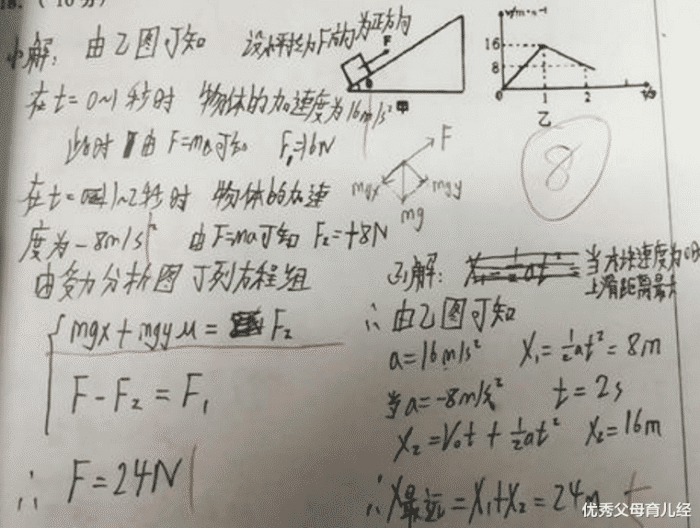 18. (10分)
v/m·s⁻¹
16
8
0
1
2
t/s
F
θ
甲
乙
(1)解: 由乙图可知 设以平行于F方向为正方向
在t=0~1秒时 物体的加速度为16m/s²
此时 由F=ma可知 F₁=16N
在t=1~2秒时 物体的加速
度为-8m/s² 由F=ma可知 F₂=+8N
由受力分析图可列方程组
mgx+mgyμ= F₂
F-F₂=F₁
∴ F=24N
F
mgx
mgy
mg
8
(2)解: 当木块速度为0时
上滑距离最大
∴由乙图可知
a=16m/s² X₁=½at²=8m
当a=-8m/s² t=2s
X₂=V₀t+½at² X₂=16m
∴X最远=X₁+X₂=24m
优秀父母育儿经